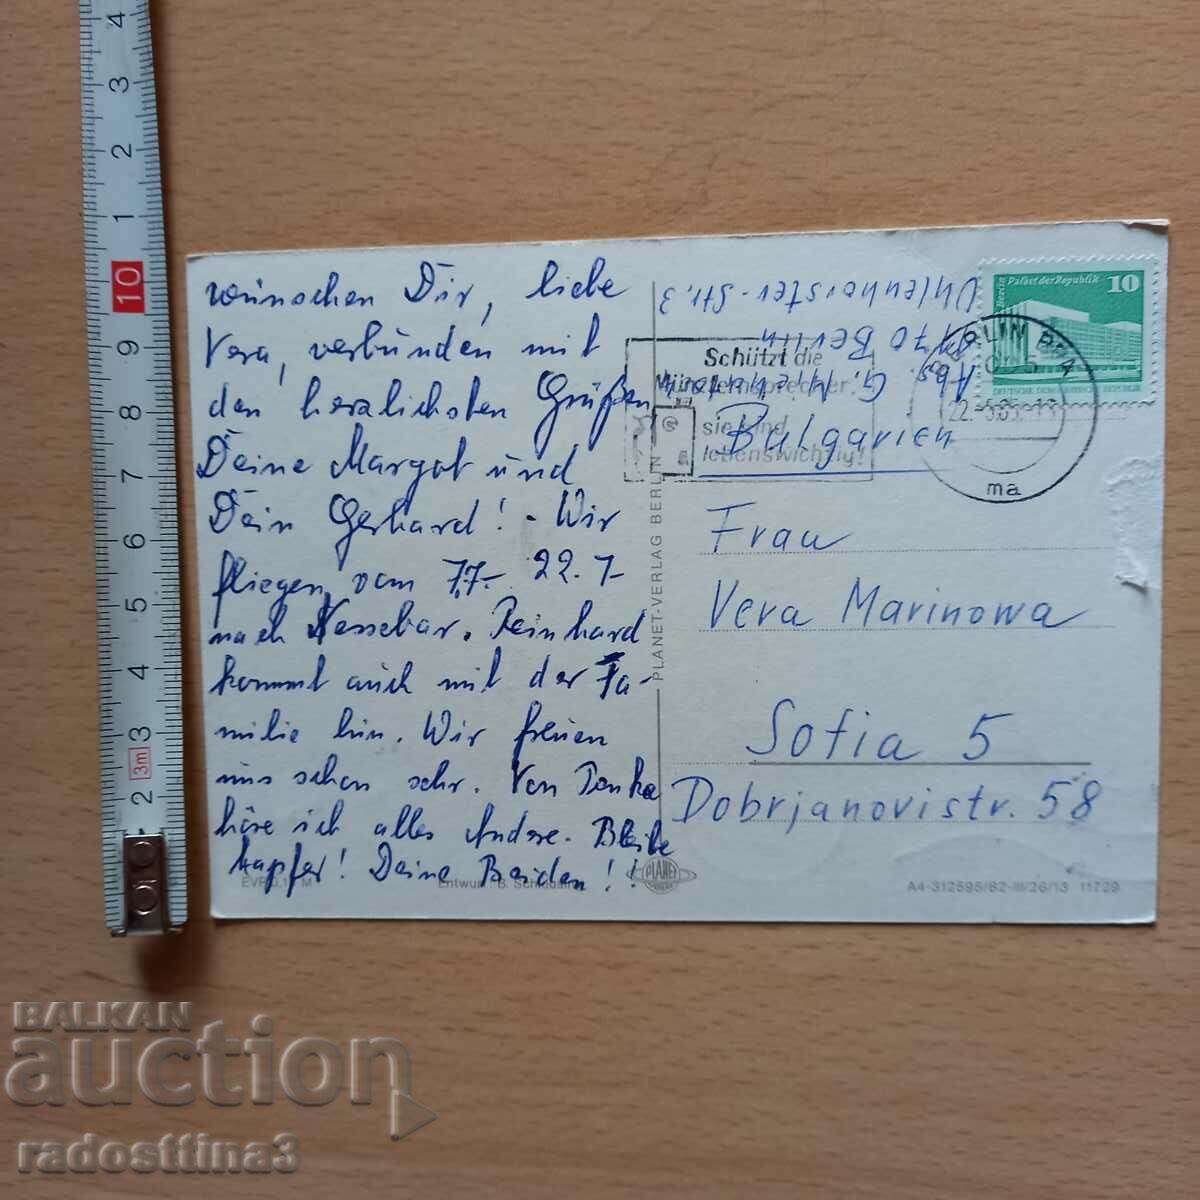 wünschen Dir, liebe
Vera, verbunden mit
den herzlichsten Grüßen
Deine Margot und
Dein Gerhard! - Wir
fliegen vom 7.7.- 22.7.
nach Nessebar. Reinhard
kommt auch mit der Fa-
milie hin. Wir freuen
uns schon sehr. Von Tonka
höre ich alles Andere. Bleibe
tapfer! Deine Beiden!!
EVP 0,
M
Entwurf: B.
PLANET-VERLAG BERLIN
PLANET
Abs. G.
1170 Berlin
Uhlenhorster-Str. 3
Schützt die
Münzfernsprecher
sie sind
lebenswichtig!
Berlin Palast der Republik 10
DEUTSCHE DEMOKRATISCHE REPUBLIK
BERLIN
22.
ma
Bulgarien
Frau
Vera Marinowa
Sofia 5
Dobrjanovistr. 58
A4-312595/82-III/26/13 11729
4
3
2
1
10
9
8
7
6
5
4
3
3m
2
BALKAN
auction
radosttina3